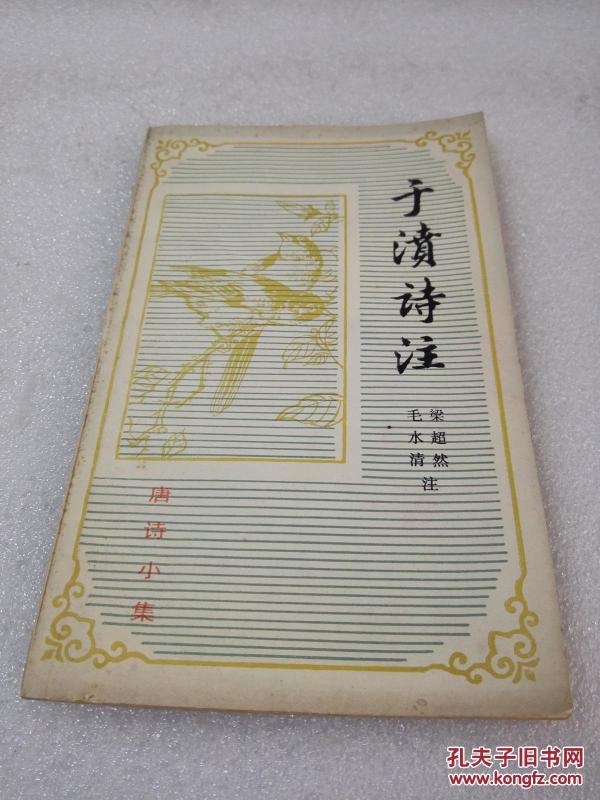 于濆诗注
梁超然
毛水清
注
唐诗小集
孔夫子旧书网
www.kongfz.com